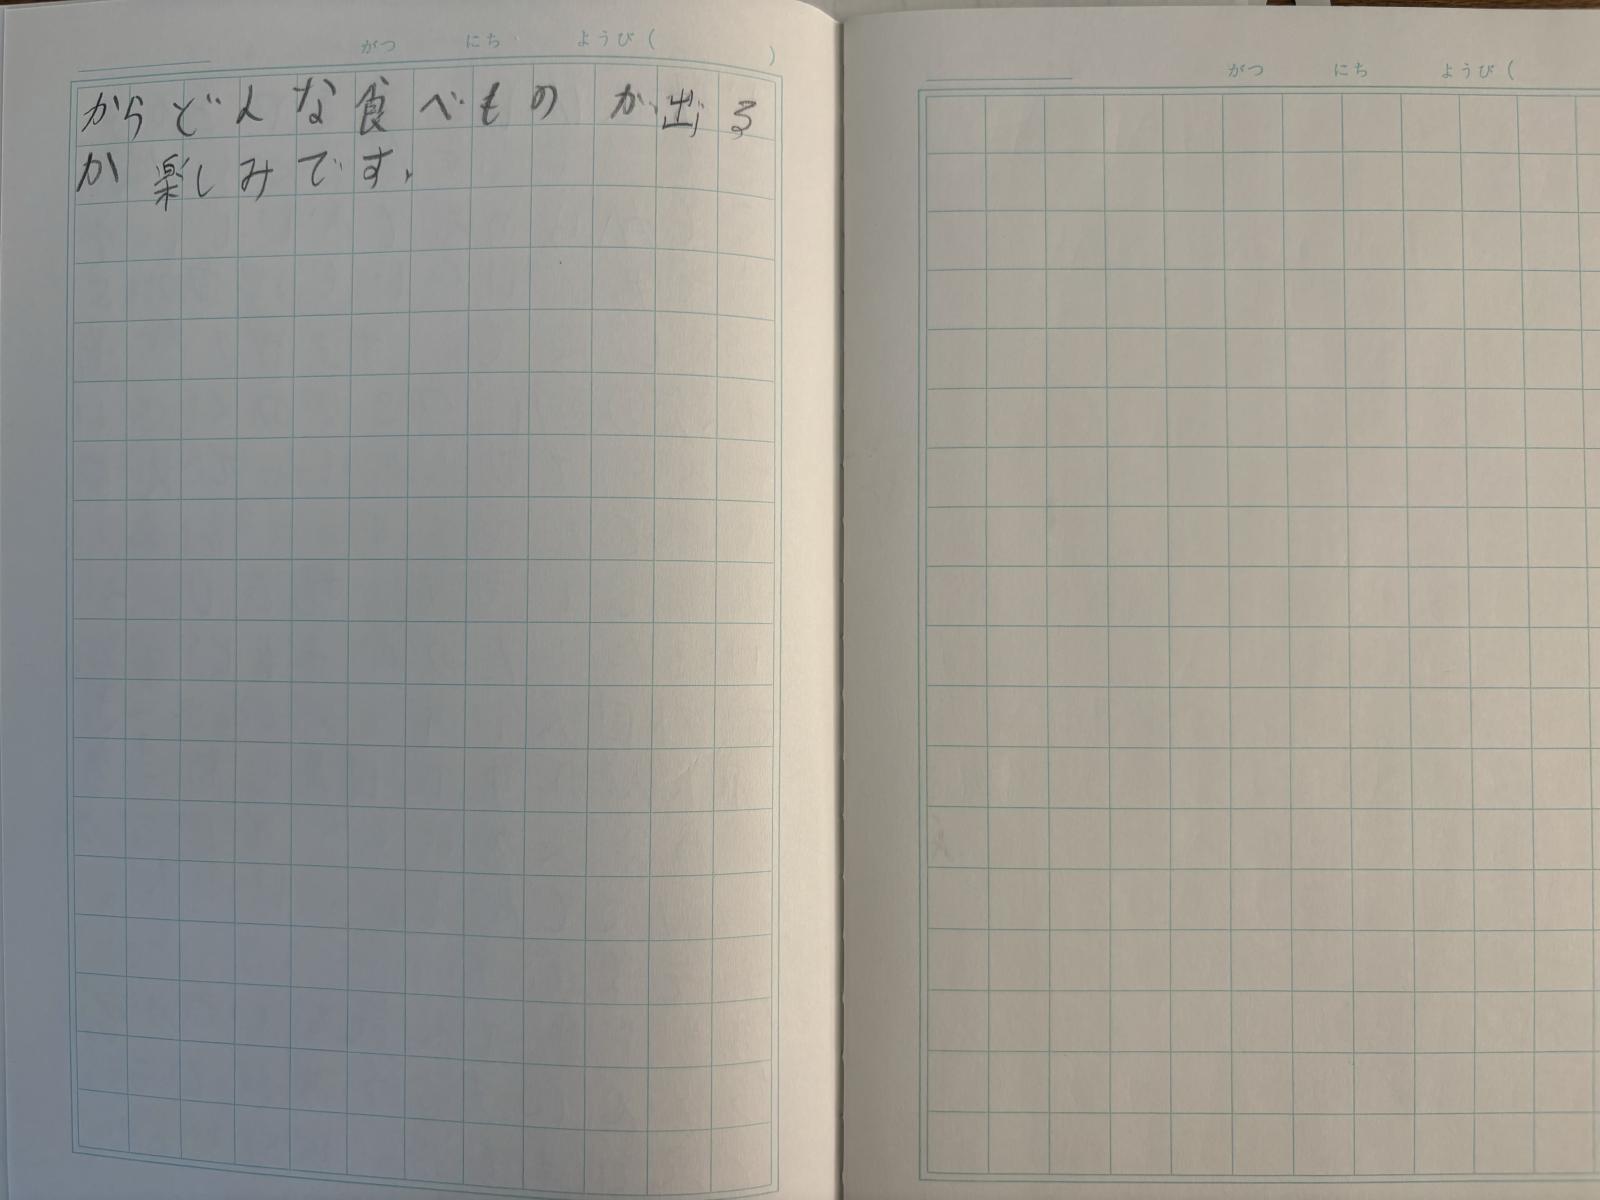 がつ にち ようび( )
からどんな食べものが出る
か楽しみです。
がつ にち ようび(